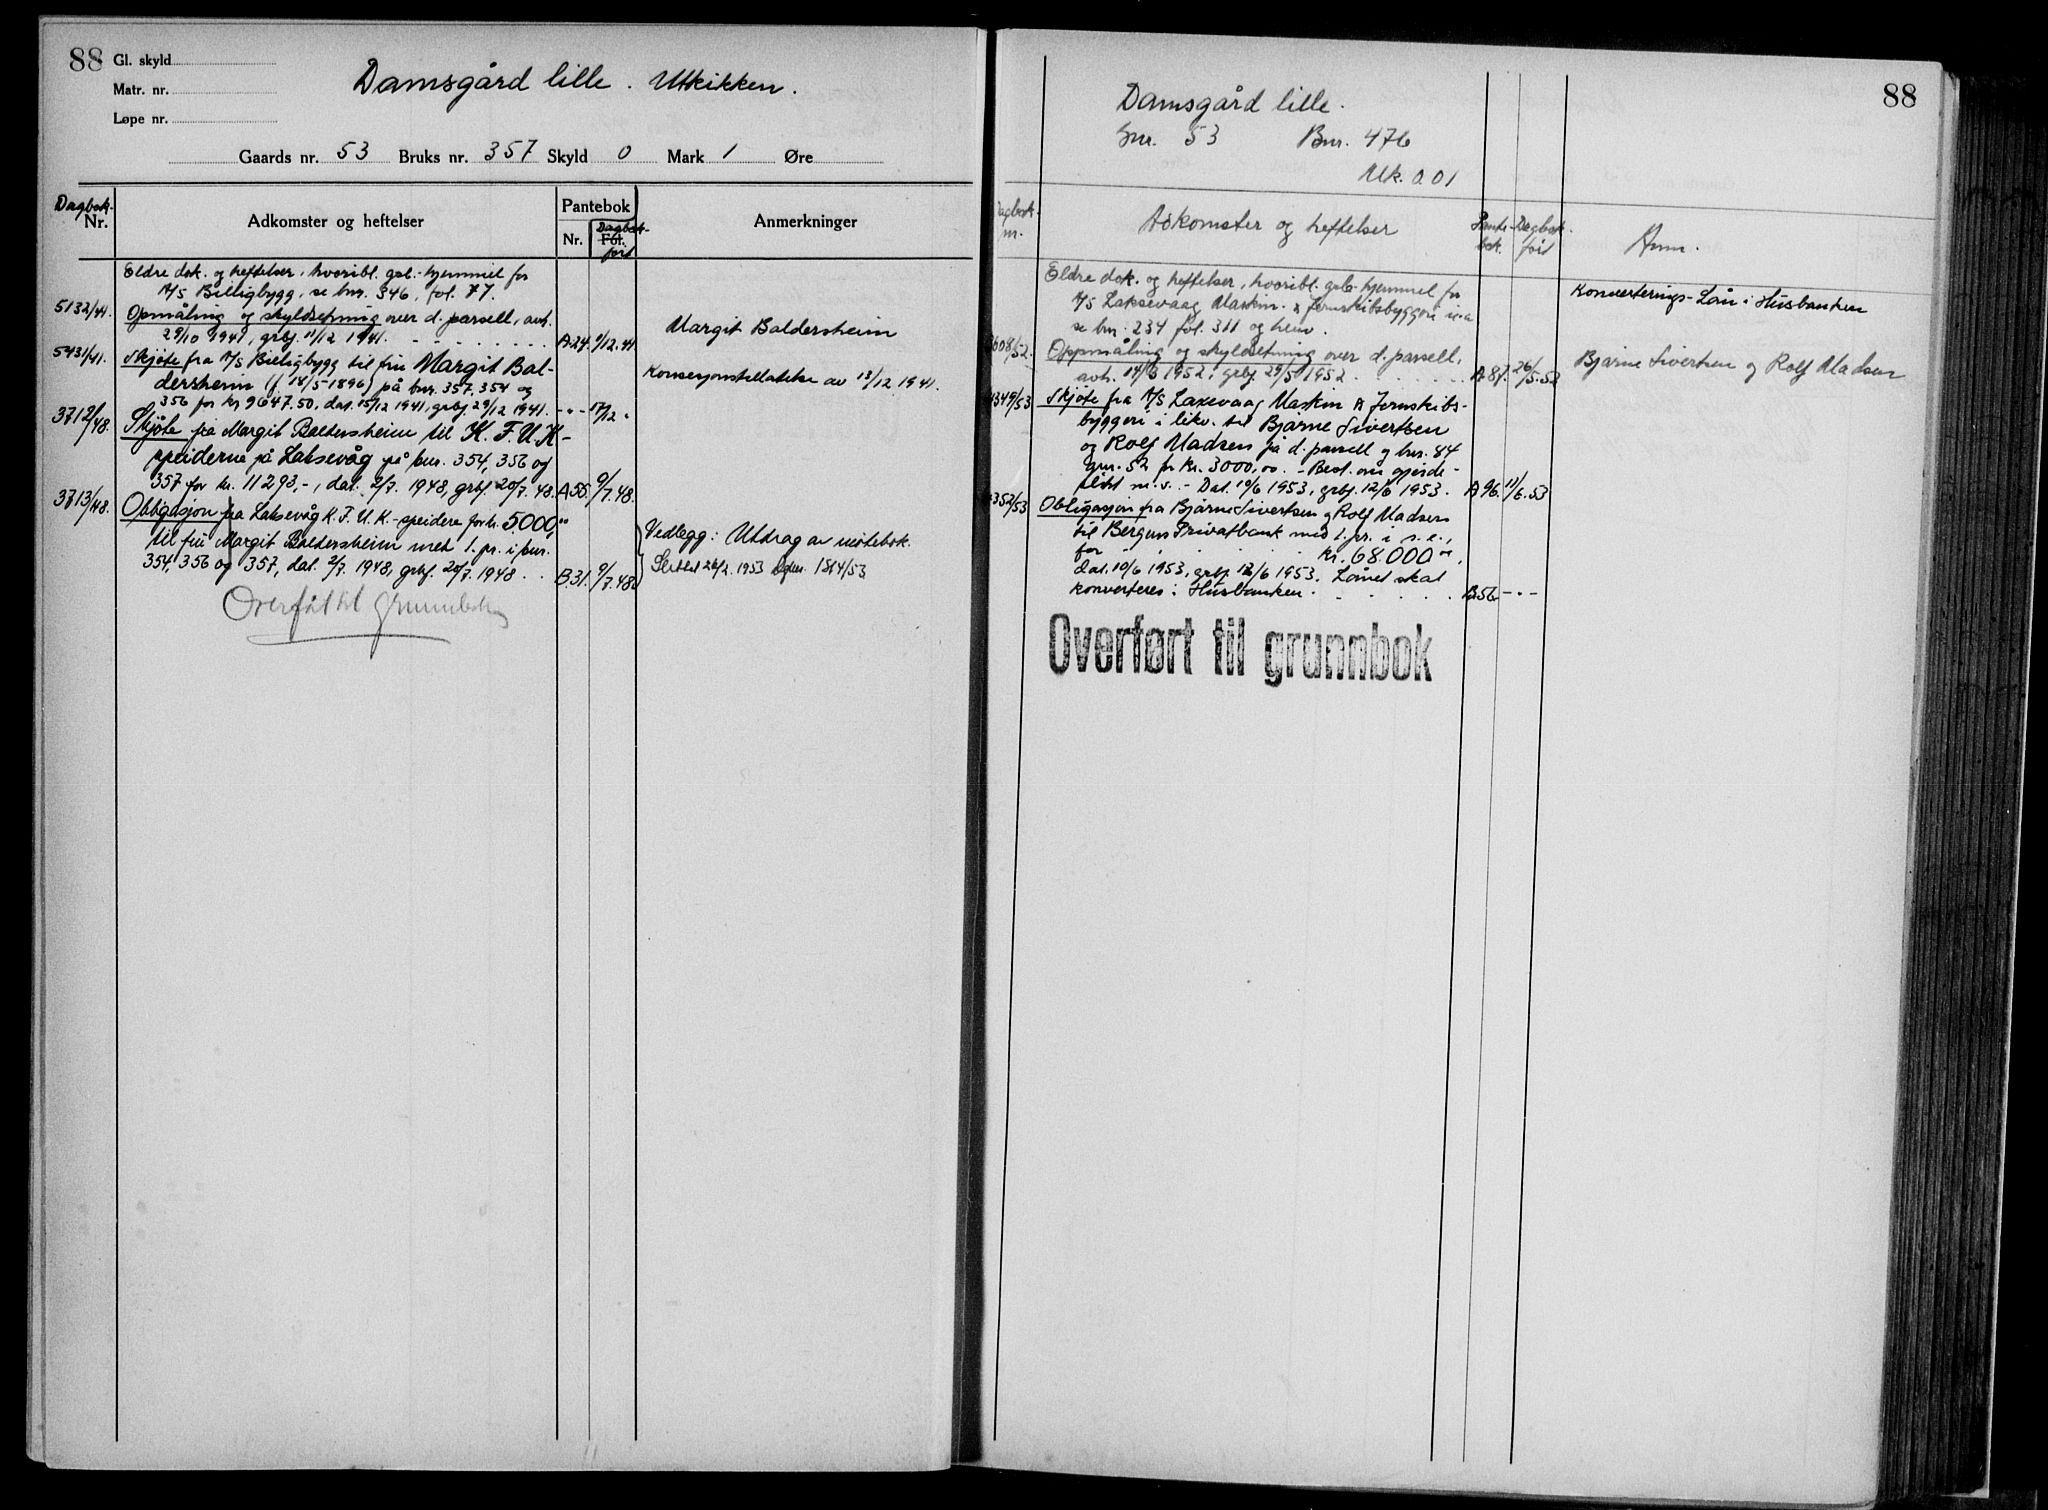 88 Gl. skyld
Matr. nr.
Løpe nr.
Damsgård lille. Utkikken.
Gaards nr. 53 Bruks nr. 357 Skyld 0 Mark 1 Øre
Dagbok- Nr.
Adkomster og heftelser
Pantebok
Nr. Fol. Dagbok- ført
Anmerkninger
Eldre dok. og heftelser, hvoribl. gbl.-hjemmel for
A/S Billigbygg, se bnr. 346, fol. 77.
5132/41. Opmåling og skyldsetning over d. parsell, avh.
29/10 1941, grbj. 11/12 1941. A.24. 9/12.41
Margit Baldersheim
5431/41. Skjøte fra A/S Billigbygg til fru Margit Bal-
dersheim (f. 14/5-1896) på bnr. 357, 354 og
356 for kr 9647.50, dat. 15/12 1941, grbj. 29/12 1941. -"- 17/12 "
Konsesjonstillatelse av 13/12 1941.
3712/48. Skjøte fra Margit Baldersheim til K.F.U.K-
speiderne på Laksevåg på bnr. 354, 356 og
357 for kr. 11293,-, dat. 2/7. 1948, grbj. 20/7.48. A.50. 9/7.48.
3713/48. Obligasjon fra Laksevåg K.F.U.K.-speidere for kr. 5000,"
til fru Margit Baldersheim med 1. pr. i bnr.
354, 356 og 357, dat. 2/7. 1948, grbj. 20/7. 1948. B.31. 9/7.48
Vedlegg: Utdrag av møtebok.
Slettet 26/2. 1953 Dgbnr. 1814/53
Overført til grunnbok
88
Damsgård lille.
Gnr. 53 Bnr. 476
Mk. 0.01
Dagbok- nr.
Adkomster og heftelser
Pante- bok.
Dagbok- ført
Anm.
Eldre dok. og heftelser, hvoribl. grb-hjemmel for
A/S Laksevaag Maskin. & Jernskibsbyggeri
se bnr. 234 fol. 311 og henv.
Konverterings-Lån i Husbanken
608/52. Oppmåling og skyldsetning over d. parsell,
avh. 14/3 1952, grbj. 29/5 1952. A.87. 26/5.52
Bjarne Sivertsen og Rolf Madsen
349/53 Skjøte fra A/S Laxevaag Maskin & Jernskibs-
byggeri i likv. til Bjarne Sivertsen
og Rolf Madsen på d. parsell og bnr. 84
gnr. 52 for kr. 3000,00. - Best. om gjerde-
plikt m.v. - Dat. 10/6 1953, grbj. 12/6 1953. A.96. 11/6.53
352/53 Obligasjon fra Bjarne Sivertsen og Rolf Madsen
til Bergens Privatbank med 1. pr. i s.e.,
for kr. 68.000 "
dat. 10/6 1953, grbj. 12/6 1953. Lånet skal
konverteres i Husbanken. B.56 -"-
Overført til grunnbok